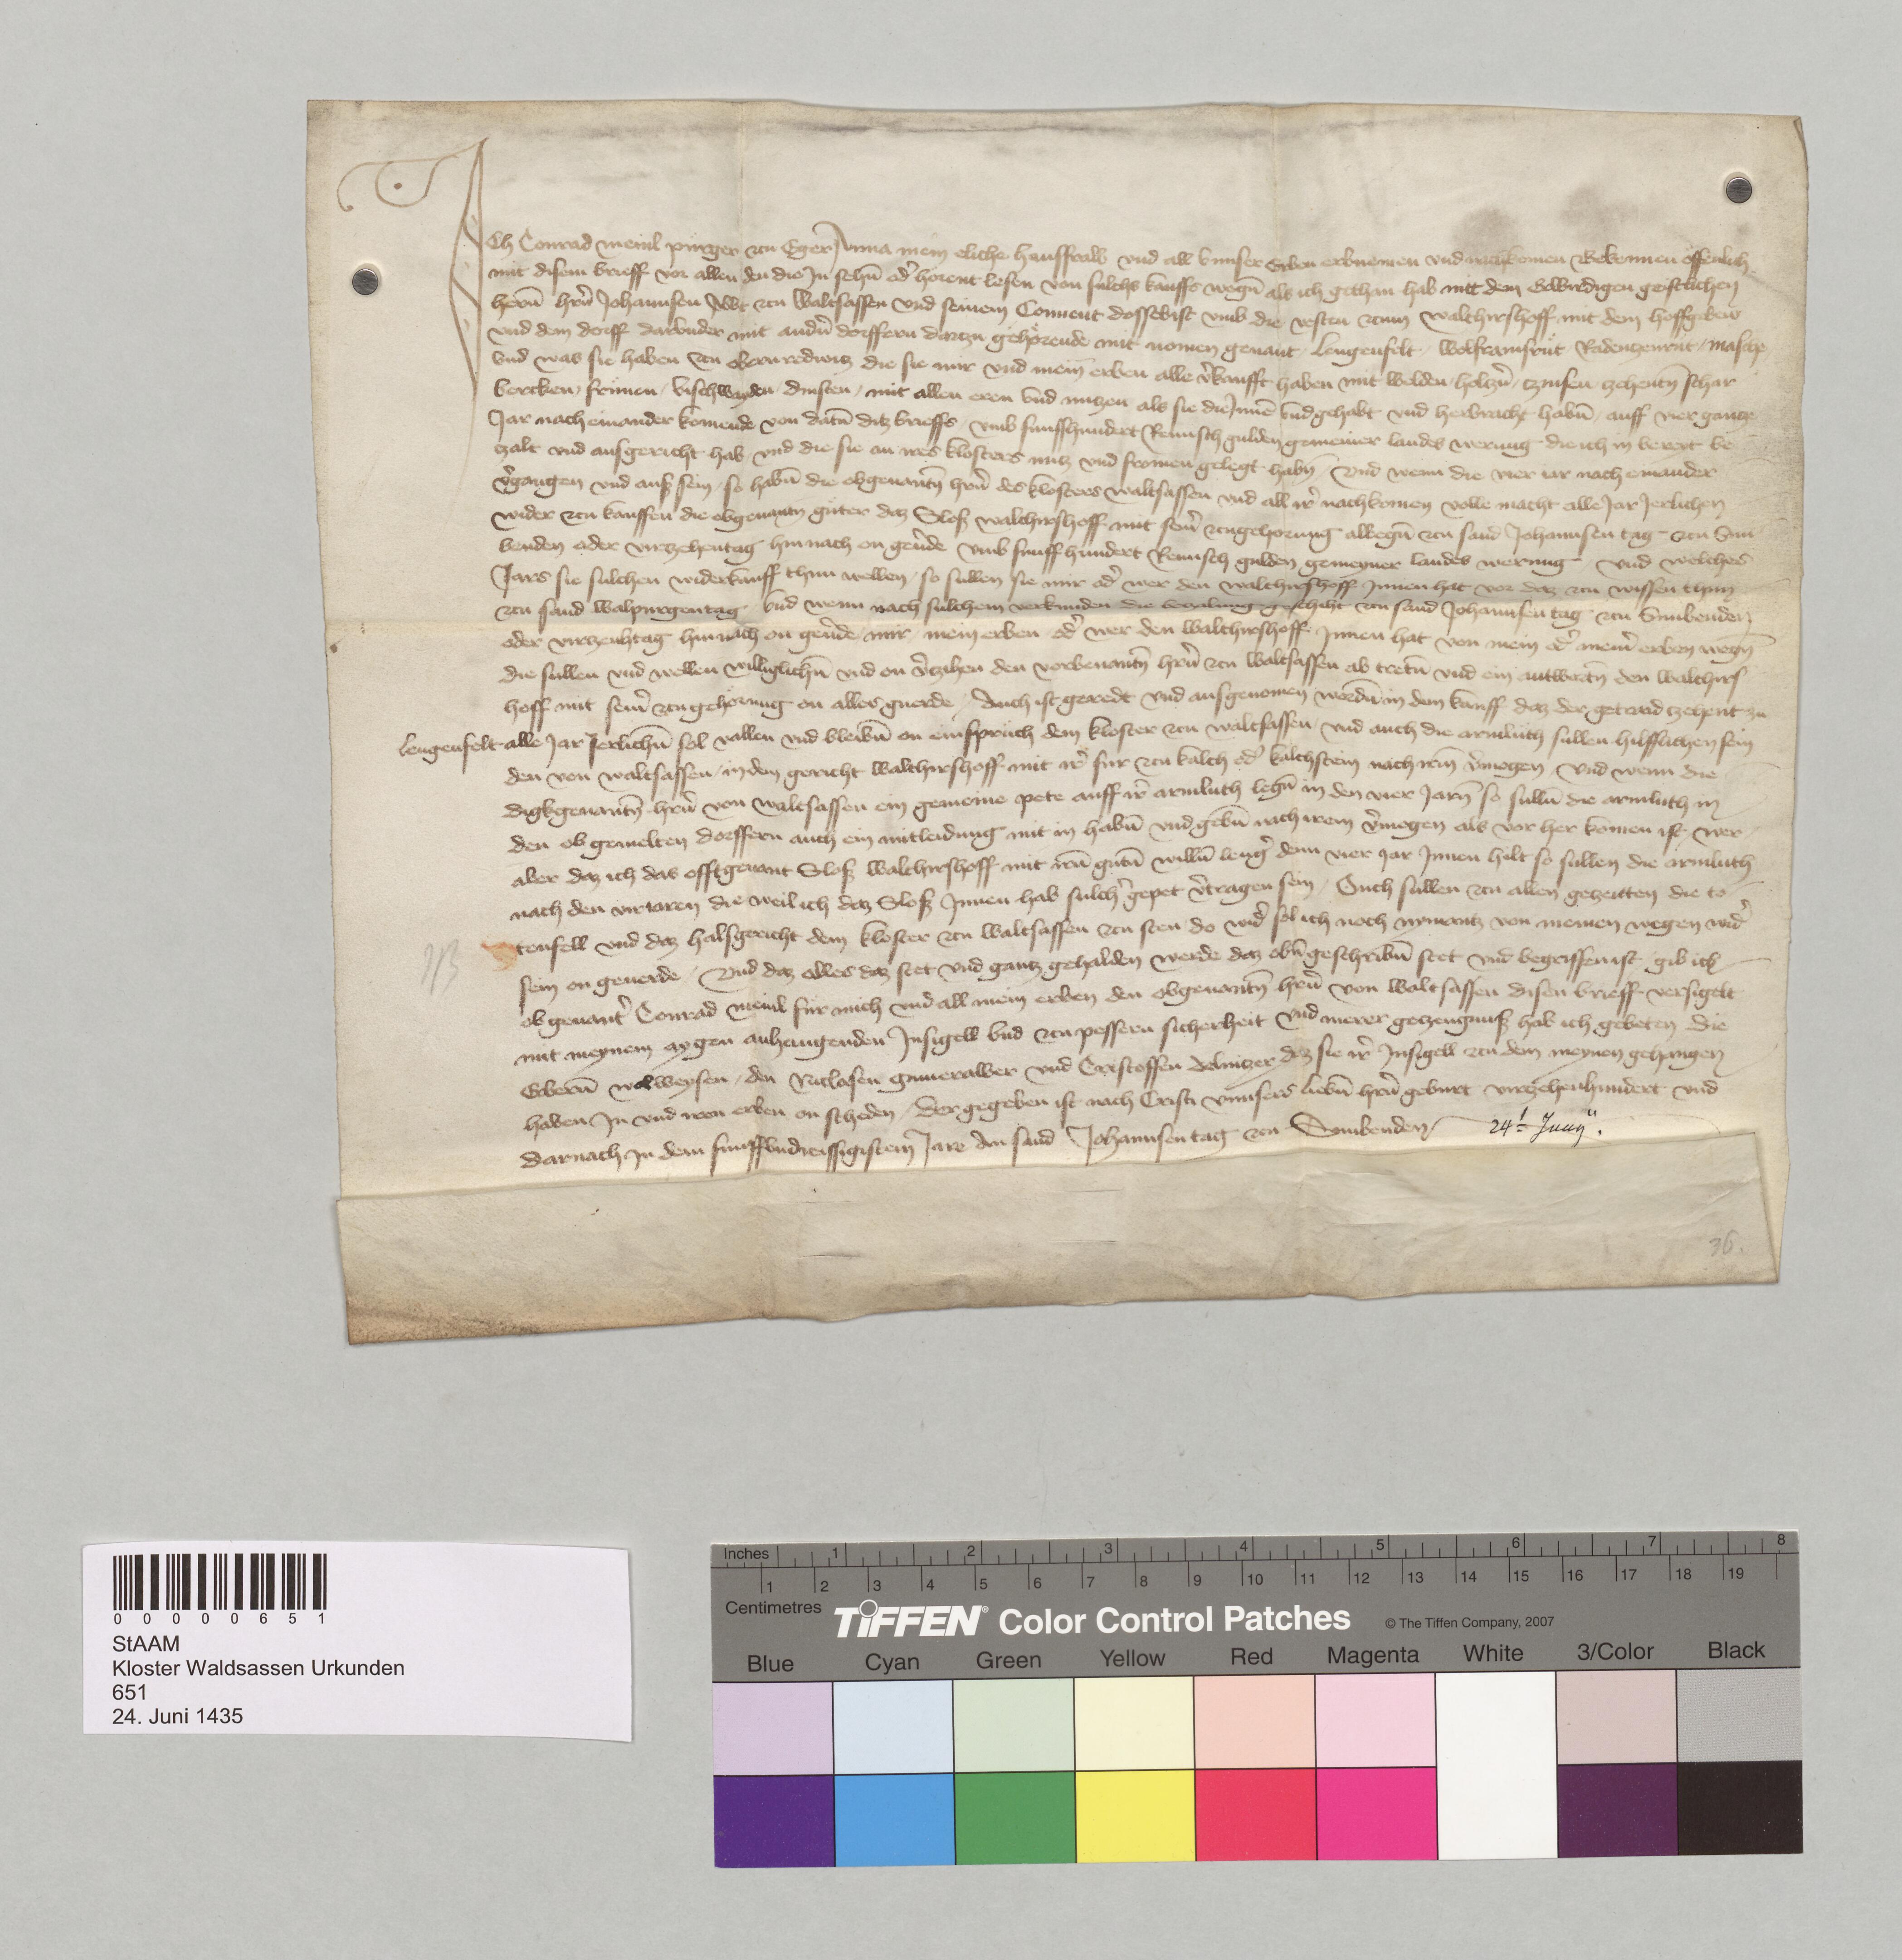 Ich Conrad meinl purger czu Eger Anna mein eliche hausfraw vnd all vnnser Erben erbnemen vnd nachkomen Bekennen offenlich
mit disem brieff vor allen den die Jn sehn̄ od' horent lesen von sulchs kauffs wegn̄ als ich gethan hab mit dem Erbirdigen geistlichen
hern̄ hrn̄ Johannsen Abbt czu Waltsassen vnd seinem Conuent dosselbist vmb die vesten czum walthershoff mit dem hoffgebew
vnd dem dorff darvnder mit andn̄ dorffern dartzu gehorende mit nomen genant / Lengenfelt / Wolframsrut Radentzenrut / Masche
vnd was sie haben czu obernredwitz die sie mir vnd mein erben alle v'kaufft haben mit welden / holtzn̄ / tzinsen / tzehentn̄ schar
bercken / frönen / vischwayden / dinsten / mit allen eren vnd nutzen als sie die Jnne vnd gehabt vnd herbracht habn̄ / auff vier gantze
Jar nach einander komende von datū ditz brieffs vmb funffhundert Reinisch gulden gemeiner landes werung die ich in bereyt be
tzalt vnd ausgericht hab vnd die sie an ires klosters nutz vnd fromen gelegt habn̄ / Vnd wenn die vier iar nach einander
v'gangen vnd auß sein / so habn̄ die obgenantn̄ hrn̄ des klosters waltsassen vnd all ir' nachkomen volle macht alle Jar Jerlichen
wider czu kauffen die obgenantn guter daz Sloß walthirshoff mit sein' czugehorung allwegn̄ czu sand Johannsen tag czu Sun
benden oder virtzehentag hinnach on geu'de vmb funff hundert Reinisch gulden gemeyner landes werung / vnd welches
Jars sie sulchen widerkauff thun wellen / so sullen sie mir od' wer den walthirshoff Jnnen hat vor daz czu wissen thun
czu sand walpurgentag vnd wenn nach sulchem verkunden die beczalung geschiht czu sand Johannsen tag czu Sunbenden
oder virtzenhtag hinnach on geu'de mir / mein erben od' wer den walthirshoff Jnnen hat von mein od' mein' erben wegn̄
die sullen vnd wellen williglichn̄ vnd on v'tzihen den vorbenantn̄ hrn̄ czu Waltsassen ab tretn̄ vnd ein antwertn̄ den walthirs
hoff mit sein' czugehorung on alles guerde / Auch ist geredt vnd ausgenomen wordn̄ in dem kauff daz der getraid tzehent zu
Lengenfelt alle Jar Jerlichn̄ sol vallen vnd bleibn̄ on einspruch dem kloster czu waltsassen / vnd auch die armluth sullen hilfflichen sein
den von waltsassen / in dem gericht walthirshoff mit ir' fur czu kalch od' kalchstein nach irm̄ v'mogen / Vnd wenn die
digkgenantn̄ hrn̄ von waltsassen ein gemeine pete auff ir' armluth legn̄ in den vier Jarn̄ so sulln̄ die armluth in
den ob gemelten dorffern auch ein mitleidung mit in habn̄ vnd gebn̄ nach irem v'mogen als vor her komen ist / wer
aber daz ich das offtgenant Sloß walthirshoff mit irn̄ gutn̄ willn̄ leng' denn vier jar Jnnen hilt so sullen die armluth
nach den vir iaren die weil ich daz Sloß Jnnen hab sulch' gepet v'tragen sein / Ouch sullen czu allen getzeitten die to
tenfell vnd daz halsgericht dem kloster czu waltsassen czu sten do wid' sol ich noch nymantz von meinen wegen wid'
sein on geuerde / Vnd daz alles daz stet vnd gantz gehalden werde daz obn̄ geschribn̄ stet vnd begriffen ist gib ich
ob genant' Conrad meinl fur mich vnd all mein erben den obgenantn̄ hrn̄ von waltsassen disen brieff versigelt
mit meynem aygen anhangenden Jnsigell vnd czu pessern sicherheit vnd merer getzeugnuß hab ich gebeten die
Erbern̄ wolweysen / den Niclasen gumerawer vnd Cristoffen daz sie ir' Jnsigell czu dem meynen gehangen
haben Jn vnd iren erben on scheden / Der gegeben ist nach Cristi vnnsers liebn̄ hrn̄ geburt virtzehenhundert vnd
darnach Jn dem funffvndreissigistem Jare An sand Johannsen tag czu Sunbenden 24t Junij.
36.
0 0 0 0 0 6 5 1
StAAM
Kloster Waldsassen Urkunden
651
24. Juni 1435
Inches 1 2 3 4 5 6 7 8
1 2 3 4 5 6 7 8 9 10 11 12 13 14 15 16 17 18 19
Centimetres
TIFFEN® Color Control Patches © The Tiffen Company, 2007
Blue Cyan Green Yellow Red Magenta White 3/Color Black